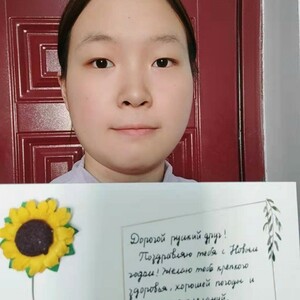 Дорогой русский друг!
Поздравляю тебя с Новым
годом! Желаю тебе крепкого
здоровья, хорошей погоды и